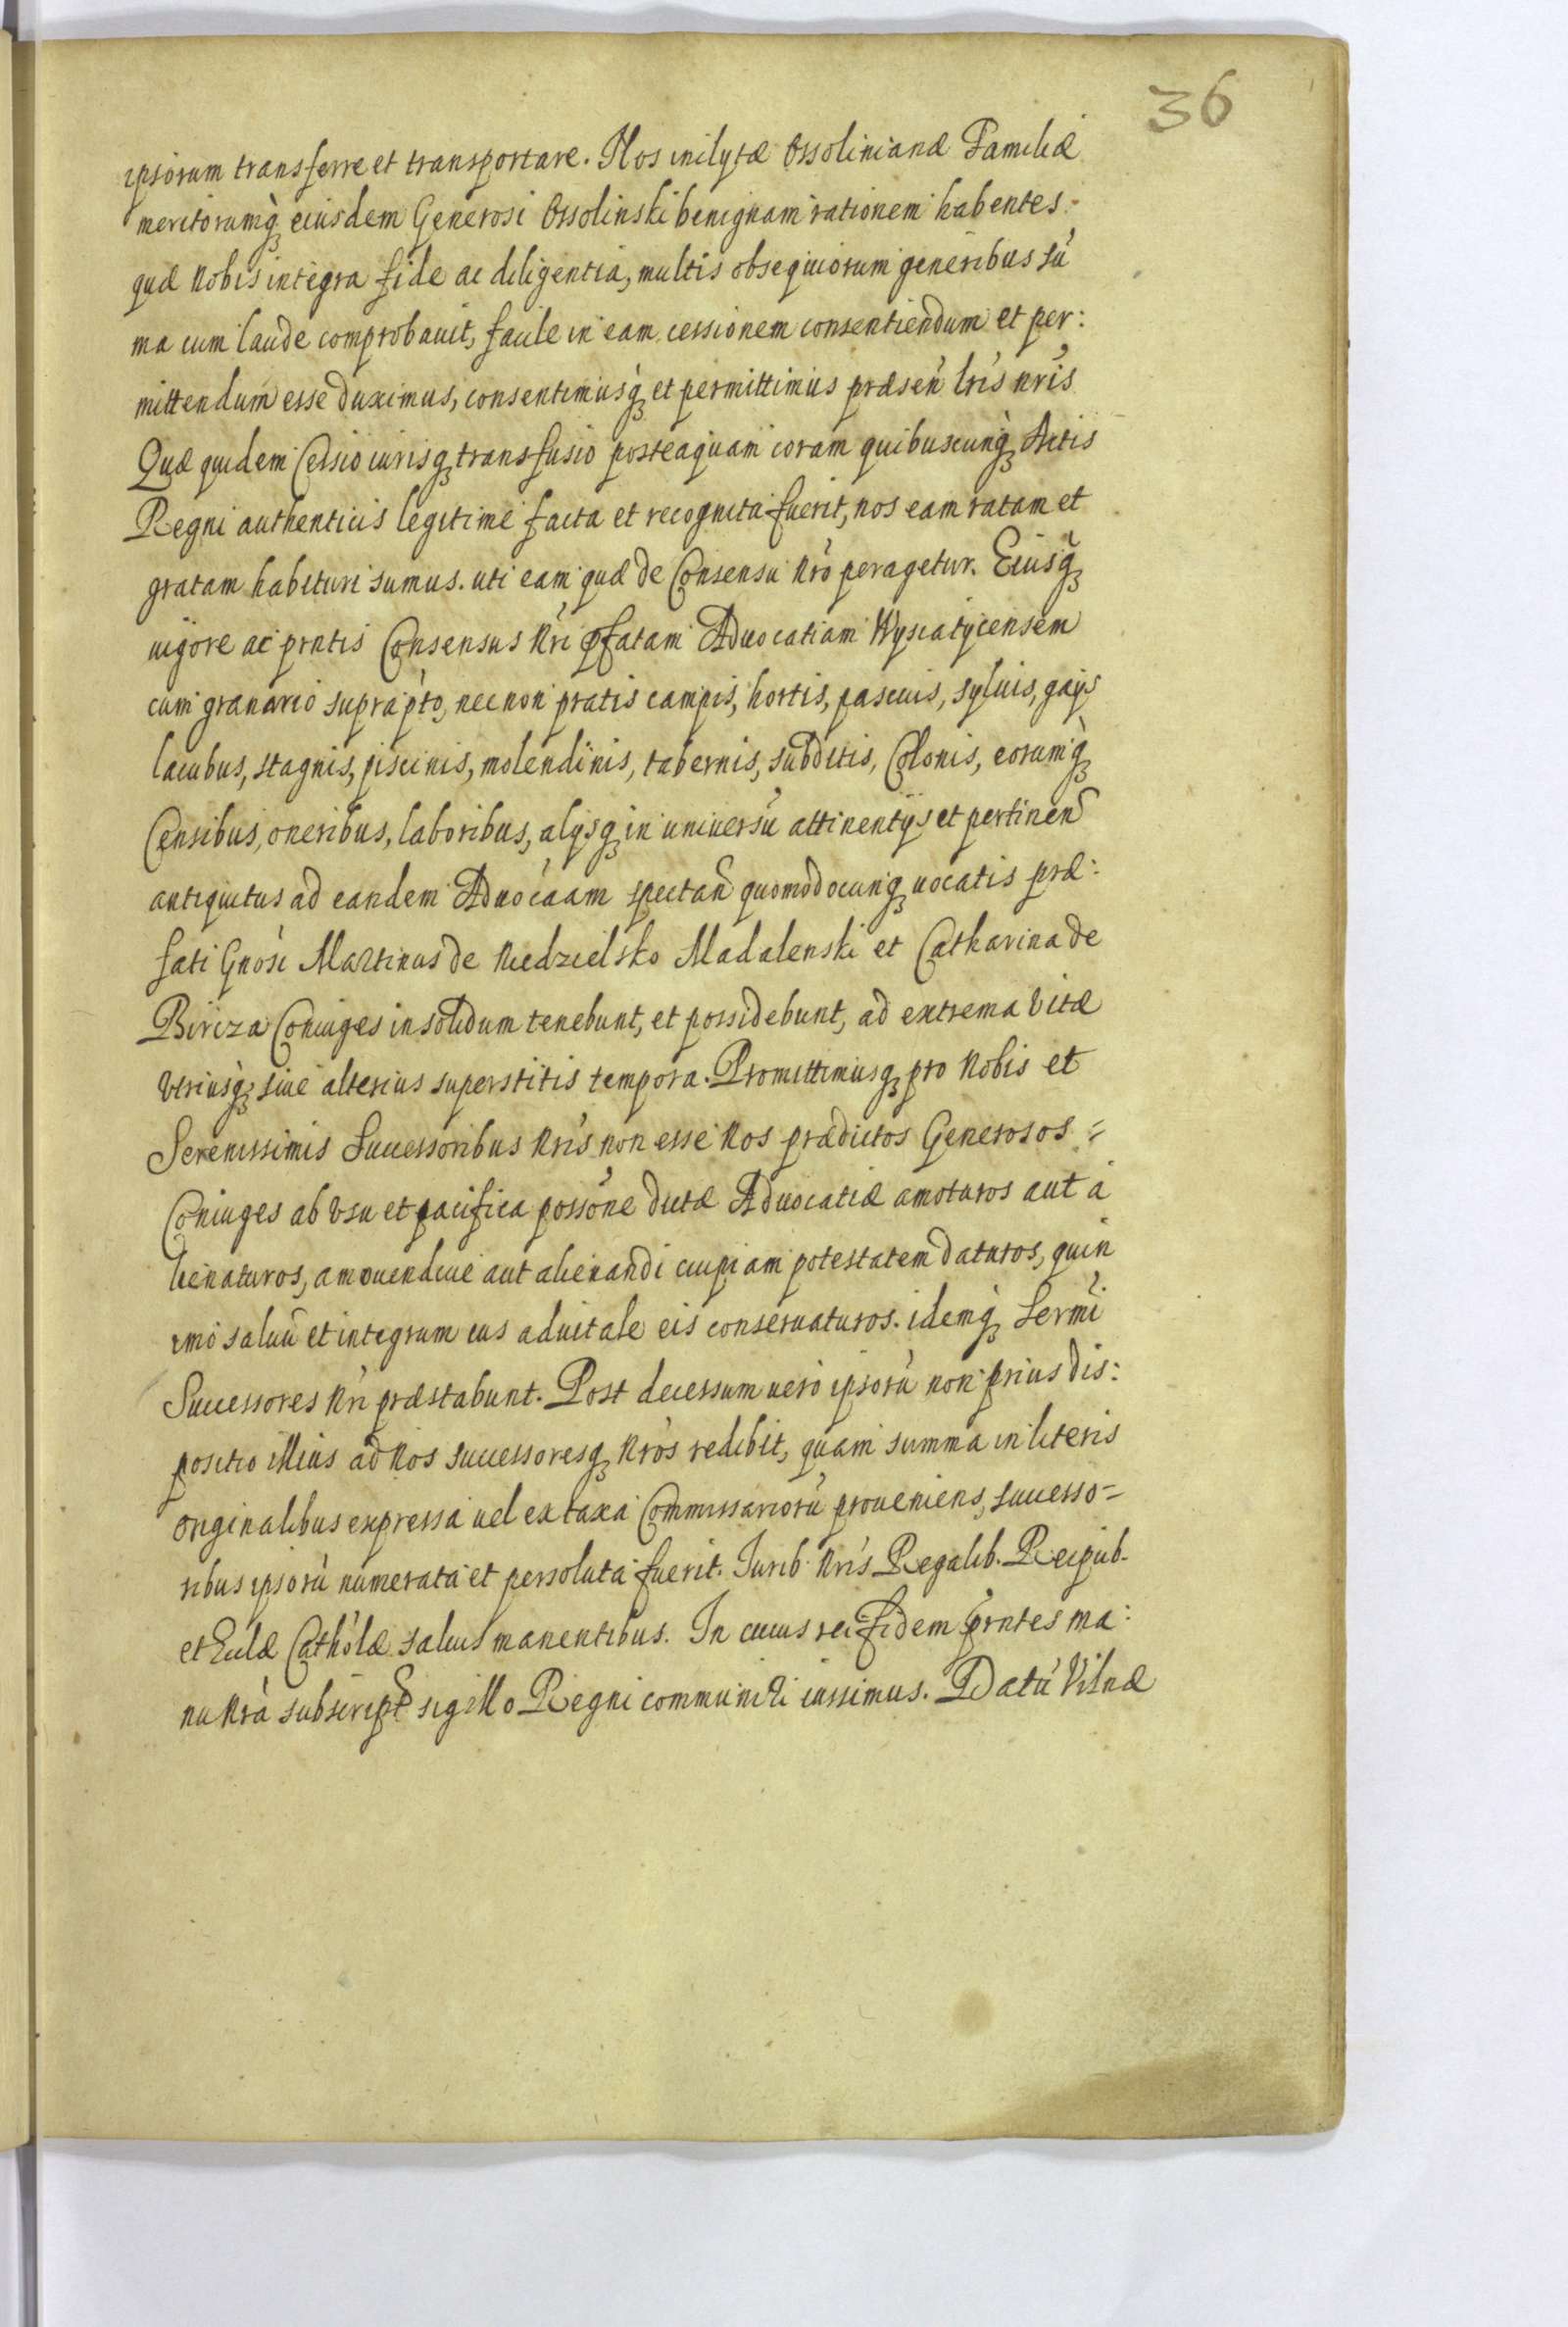 36
ipsorum transferre et transportare. Nos inclytæ Ossolinianæ Familiæ
meritorumq́ʒ eiusdem Generosi Ossolinski benignam rationem habentes.
quæ Nobis integra fide ac diligentia, multis obsequiorum generibus sũ
ma cum laude comprobauit, facile in eam cessionem consentiendum et per:
mittendum esse duximus, consentimusq́ʒ et permittimus præseñ lrĩs nrĩs
Quæ quidem Cessio iurisqʒ transfusio posteaquam coram quibuscunq́ʒ Actis
Regni authenticis legitime facta et recognita fuerit, nos eam ratam et
gratam habituri sumus. uti eam quæ de Consensu Nrõ peragetur. Eiusq́ʒ
uigore ac prntis Consensus Nrĩ pfatam Aduocatiam Wysciatycensem
cum granario supraptõ, necnon pratis campis, hortis, pascuis, syluis, gays
lacubus, stagnis, piscinis, molendinis, tabernis, subditis, Colonis, eorumq́ʒ
Censibus, oneribus, laboribus, alysqʒ in uniuersũ attinentijs et pertineñ
antiquitus ad eandem Aduocãam spectañ quomodocunqʒ uocatis præ:
fati Gnõsi Martinus de Niedzielsko Madalenski et Catharina de
Bircza Coniuges in solidum tenebunt, et possidebunt, ad extrema Vitæ
Vtriusq́ʒ siue alterius superstitis tempora. Promittimusqʒ pro Nobis et
Serenissimis Successoribus Nrĩs non esse Nos prædictos Generosos =
Coniuges ab Vsu et pacifica possõne dictæ Aduocatiæ amoturos aut á
lienaturos, amouendiue aut alienandi cuipiam potestatem daturos, quin
imo saluũ et integrum ius aduitale eis conseruaturos. idemq́ʒ Sermĩ
Successores Nrĩ præstabunt. Post decessum uero ipsorũ non prius dis:
positio illius ad Nos successoresqʒ Nrõs redibit, quam summa in literis
originalibus expressa uel ex taxa Commissariorũ proueniens, successo=
ribus ipsorũ numerata et persoluta fuerit. Iurib. Nrĩs Regalib. Reipub.
et Ecclæ Cathõlæ saluis manentibus. In cuius rei fidem prntes ma:
nu Nrã subscript sigillo Regni communiri iussimus. Datũ Vilnæ